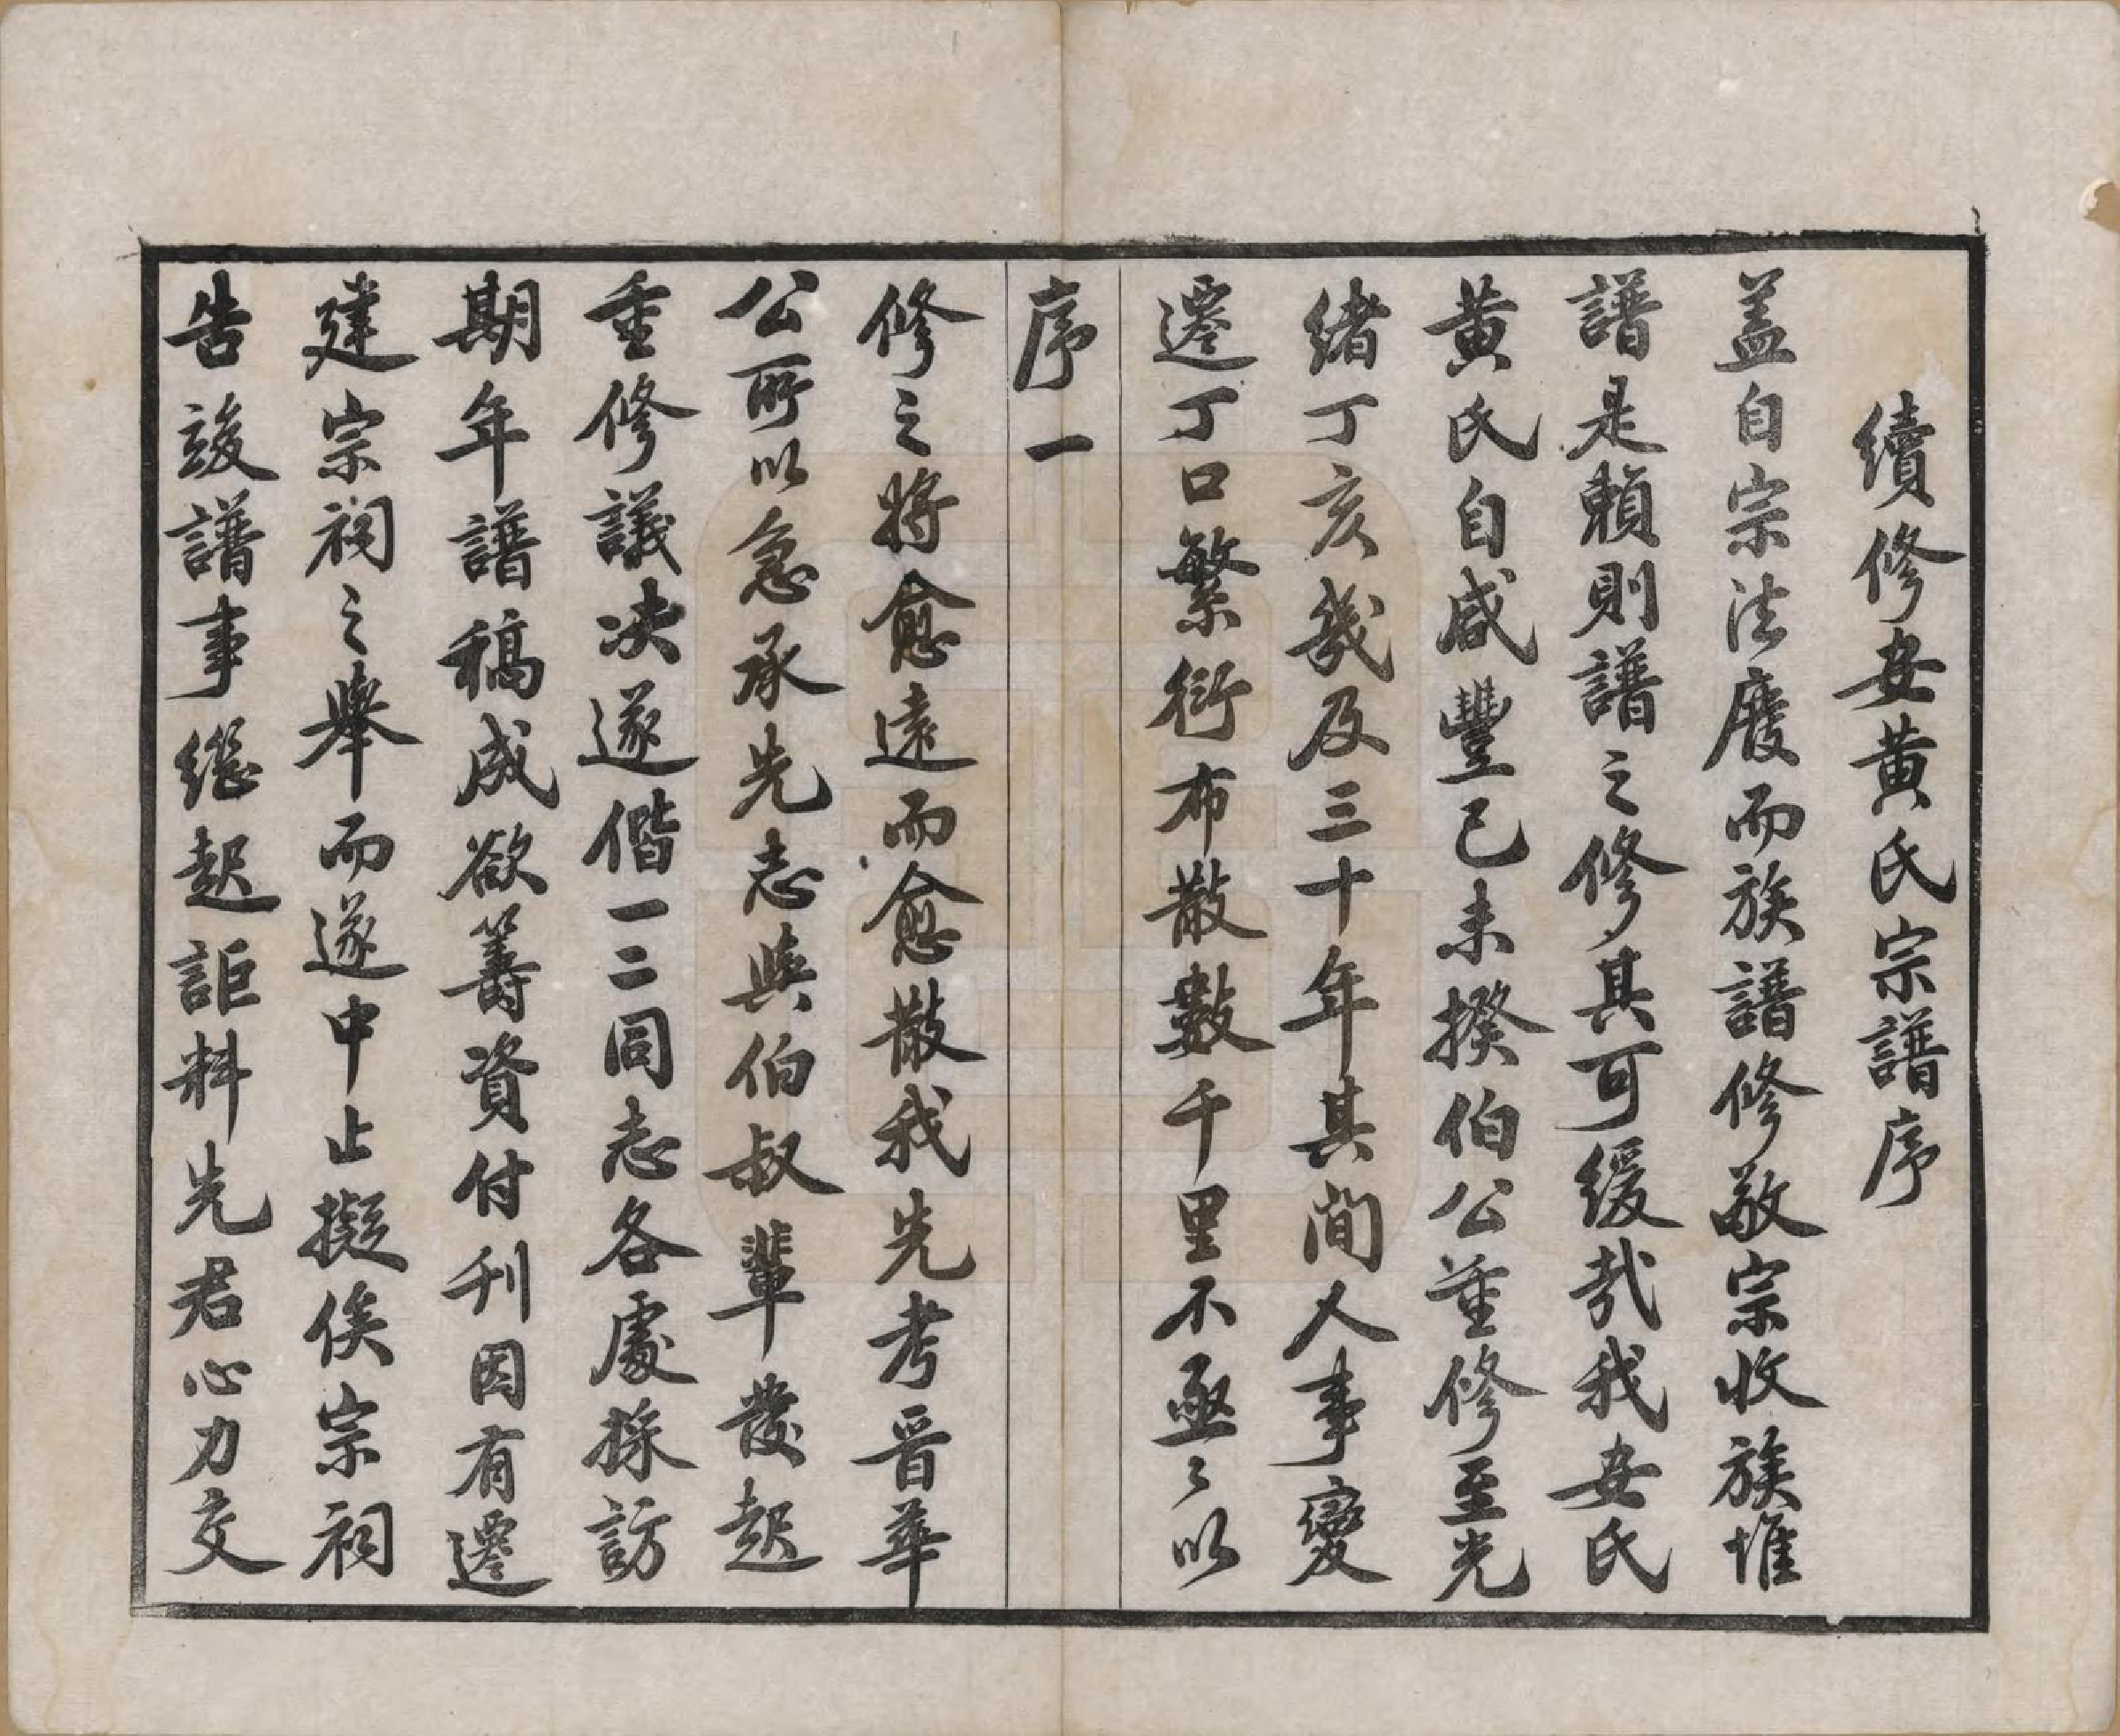 續修安黄氏宗譜序
盖自宗法廢而族譜修敬宗收族惟
譜是賴則譜之修其可緩哉我安氏
黄氏自咸豐己未揆伯公重修至光
緒丁亥幾及三十年其間人事變
遷丁口繁衍布散數千里不亟亟以
序一
修之將愈遠而愈散我先考晋華
公所以急承先志與伯叔輩發起
重修議决遂偕一二同志各處採訪
期年譜稿成欲籌資付刊因有遷
建宗祠之舉而遂中止擬俟宗祠
告竣譜事繼起詎料先君心力交